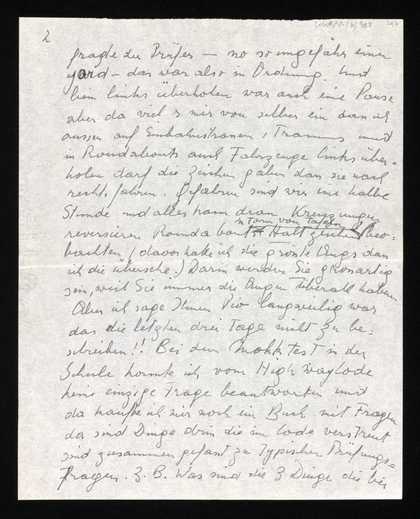 2
fragte der Prüfer – no so ungefähr einen
yard – das war also in Ordnung. Und
beim links überholen war auch eine Pause
aber da viel's mir von selber ein dass ich
ausser auf Einbahnstrassen, Tramms und
in Roundabouts auch Fahrzeuge links über-
holen darf die Zeichen gaben dass sie nach
rechts fahren. Gefahren sind wir eine halbe
Stunde und alles kam dran Kreuzungen
in Form von Tafeln
reversieren Roundabouts Haltzeichen beo-
bachten, (davor hatte ich die grösste Angst dass
ich die übersehe.) Darin werden Sie grossartig
sein, weil Sie immer die Augen überall haben.
Aber ich sage Ihnen Pio langweilig war
das die letzten drei Tage nicht zu be-
schreiben!! Bei dem Mokktest in der
Schule konnte ich vom Highwaycode
keine einzige Frage beantworten und
da kaufte ich mir noch ein Buch mit Fragen
da sind Dinge drin die im Code verstreut
sind zusammen gefasst zu typischen Prüfungs-
fragen. Z. B. Was sind die 3 Dinge die bei